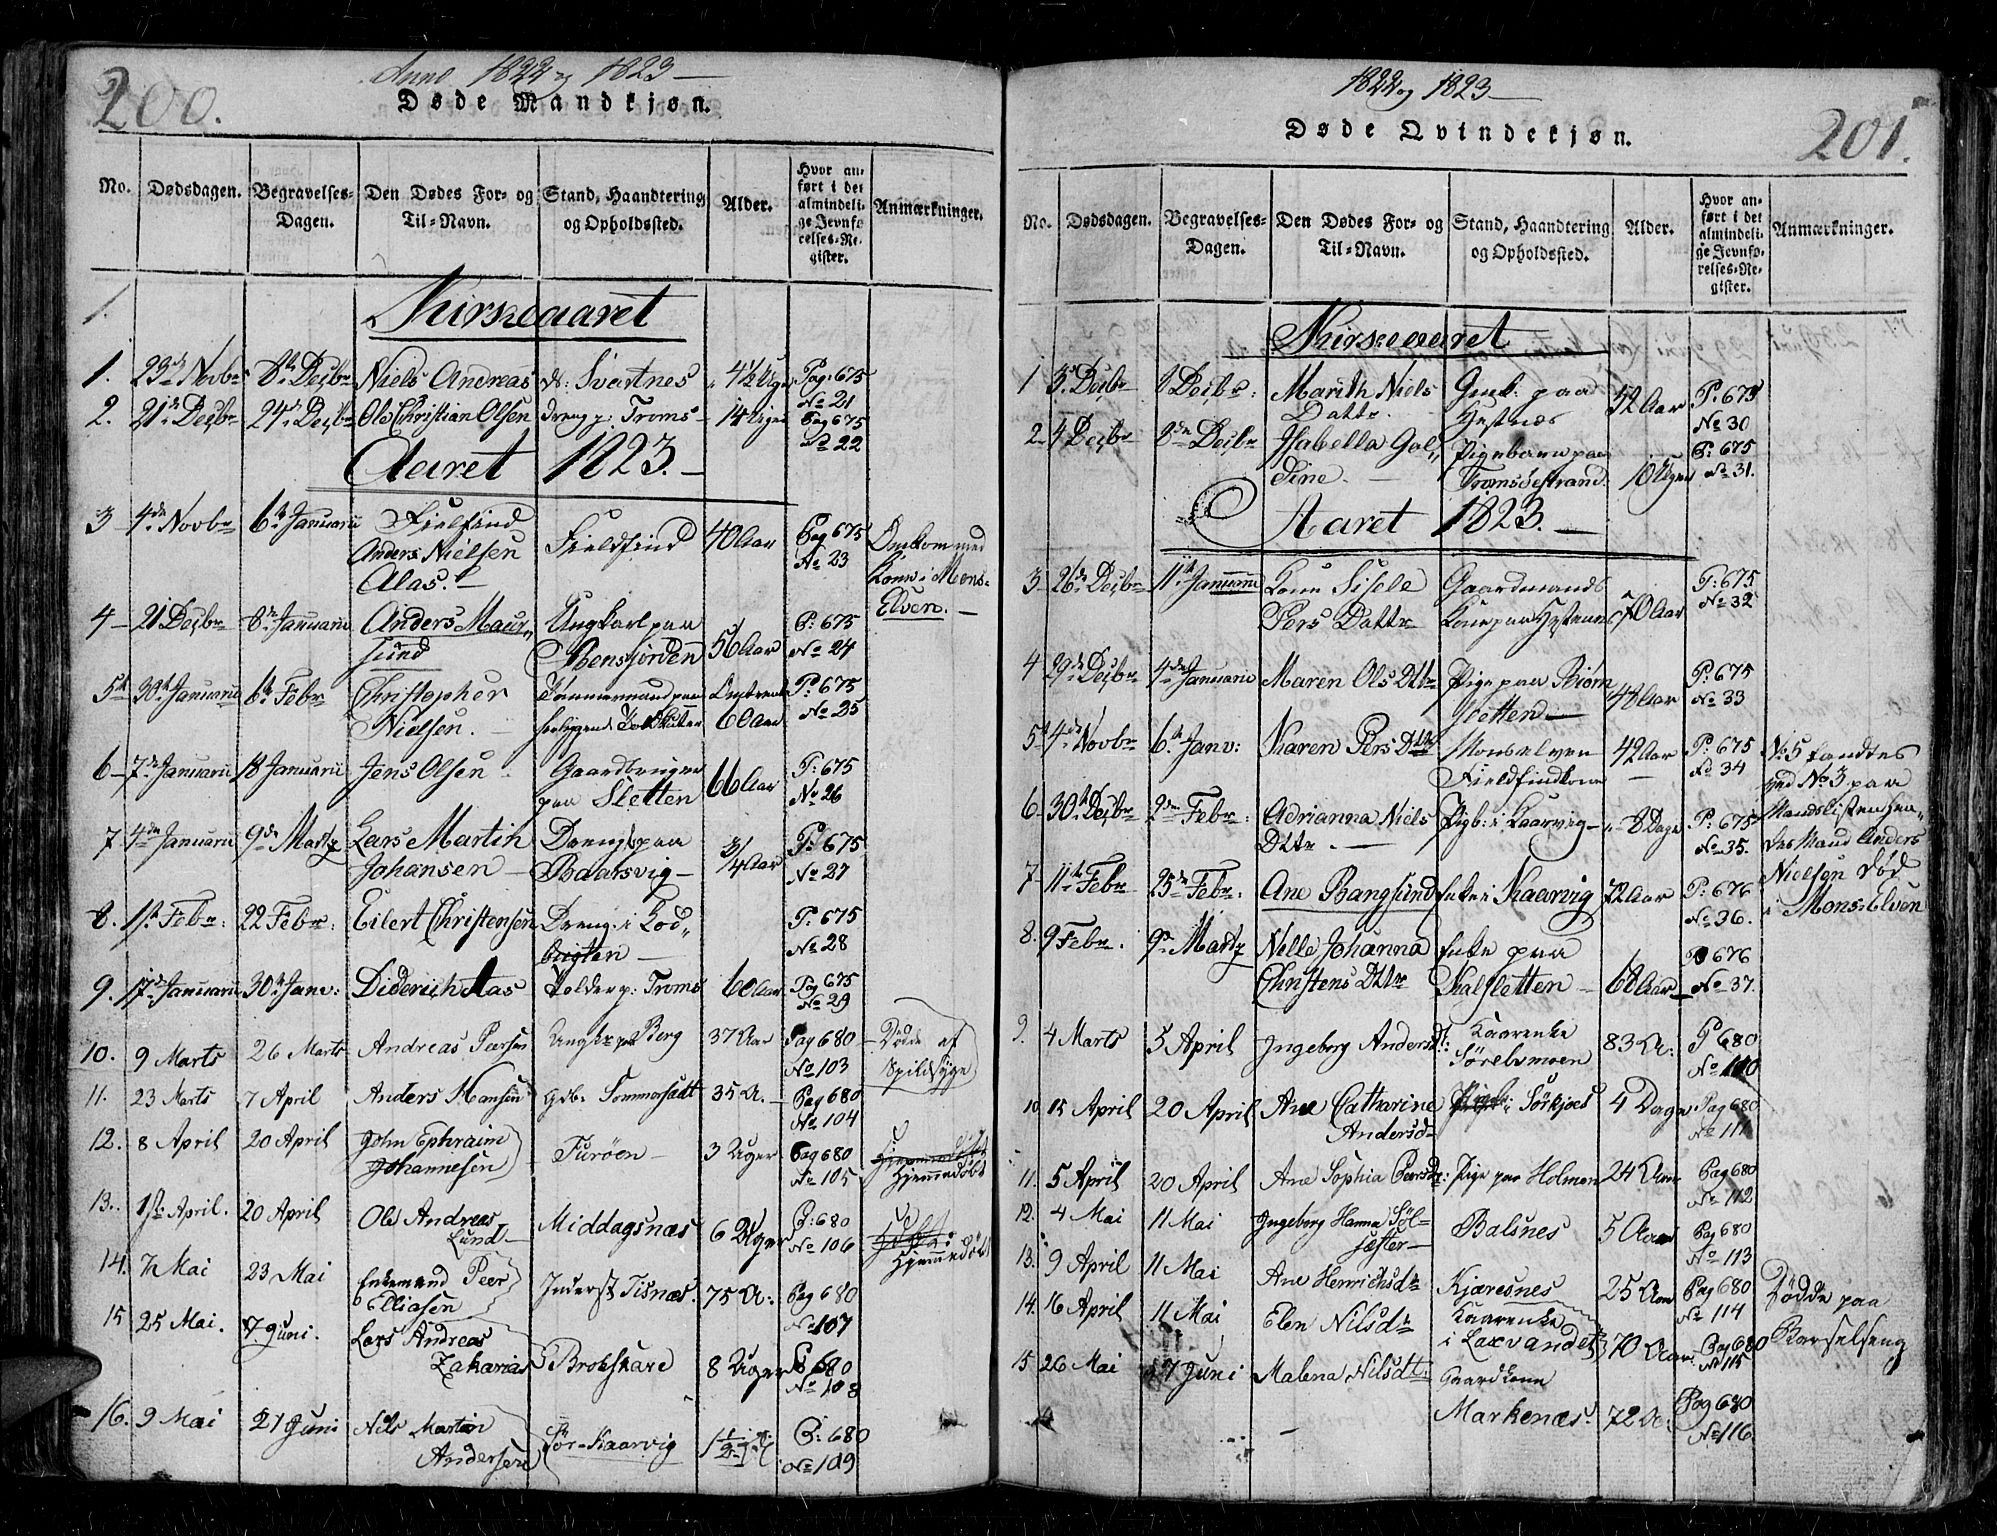 200.
Anno 1822 og 1823
Døde Mandkjøn.
No. Dødsdagen. Begravelses-Dagen. Den Dødes For- og Til-Navn. Stand, Haandtering og Opholdssted. Alder. Hvor anført i det almindelige Jevnførelses-Register. Anmærkninger.
Kirkeaaret
1. 23de Novbr 8de Decbr Niels Andreas d: Svartnes 4½ Uge Pag: 675 No 21
2. 21de Decbr 24de Decbr Ole Christian Olsen Dreng p: Troms 14 Uger Pag 675 No 22
Aaret 1823.
3 4de Novbr 6te Januarii Fielfind Anders Nielsen Alas. Fieldfind 40 Aar Pag 675 No 23 Omkom med Kone i Mons-Elven.
4 21 Decbr 8de Januarii Anders Maursund Ungkarl paa Stensfjorden 56 Aar P: 675 No 24
5 30te Januarii 6te Febr Christopher Nielsen. Omtrent 60 Aar P: 675 No 25
6 7de Januarii 18 Januarii Jens Olsen Gaardbruger paa Sletten 66 Aar P: 675 No 26
7 4de Januarii 9de Martz Lars Martin Johansen Drengb paa Baarsvig 3/4 Aar P: 675 No 27
8. 1ste Febr: 22 Febr: Eilert Christensen Dreng i 1 P: 675 No 28
9. 17de Januarii 30te Janv: Diderich Aas Holder p: Troms 60 Aar Pag 675 No 29
10. 9 Marts 26 Marts Andreas Peersen Ungkr paa Berg 37 Aar Pag 680 No 103 Døde af Spildsyge
11. 23 Marts 7 April Anders Hansen Gdb. Sommersædt 35 A. Pag 680 No 104
12. 8 April 20 April John Ephraim Johannesen Furöen 3 Uger Pag 680 No 105 Hjemmedøbt
13. 1ste April. 20 April Ole Andreas Lund Middagsnæs 6 Uger P: 680 No 106 Hjemmedøbt
14. 7 Mai 23 Mai Enkemand Peer Elliasen Inderst Tisnæs. 75 A: Pag 680 No 107
15 25 Mai. 7 Juni. Lars Andreas Zakarias Brokskare 8 Uger P 680 No 108
16. 9 Mai 21 Juni Nils Martin Andersen Sör-Kaarvig 1½ P: 680 No 109
201.
1822 og 1823
Døde Qvindekjøn.
No. Dødsdagen. Begravelses-Dagen. Den Dødes For- og Til-Navn. Stand, Haandtering og Opholdssted. Alder. Hvor anført i det almindelige Jevnførelses-Register. Anmærkninger.
Kirkeaaret
1 3de Decbr 8 Decbr: Marith Niels Dattr. paa Hestnæs 52 Aar P: 675 No 30
2 4 Decbr 8de Decbr Isabella Galdine. Pigebarn paa Tromsøestrand 10 Uger P: 675 No 31.
Aaret 1823.
3 26de Decbr 11te Januarii Kone Sisele Pers Dattr Gaardmands Kone paa Hestnæs 70 Aar P: 675 No 32
4 29de Decbr 4de Januarii Maren Ols Dttr Pige paa Biørn 42 Aar P: 675 No 33
5 4de Novbr 6te Janv: Karen Pers Dttr Monselven Fieldfindkone 42 Aar P: 675 No 34 No 5 fandtes ved No 3 paa Mandslisten hendes Mand Anders Nielsen død i Mons-Elven
6 30te Decbr 2den Febr: Adrianna Niels Dttr. Pigb: i Kaarvig 8 Dage P: 675 No 35.
7 11te Febr 25de Febr: Ane Bangsund Enke i Kaarvig 72 Aar P: 676 No 36.
8. 9 Febr. 9de Martz Nelle Johanna Christens Dttr Enke paa Kalsletten 60 Aar P 676 No 37.
9. 4 Marts 5 April Ingeborg Andersd: Kaarenke Sörelvmoen 83 A: P 680 No 110
10 15 April 20 April Ane Catharine Andersdr Sörkjoes 4 Dage Pag 680 No 111
11. 5 April 20 April Ane Sophia Peersdr: Pige paa Holmen 24 Aar Pag 680 No 112
12. 4 Mai 11 Mai Ingeborg Hanna Sölfæster Balsnes 5 Aar Pag 680 No 113
13. 9 April 11 Mai Ane Henrichsdr Kjæresnes 25 Aar Pag 680 No 114 Døde paa Barselseng
14. 16 April 11 Mai Elen Nilsdr Kaarenke i Laxvandet 70 Aar. Pag 680 No 115
15 26 Mai 7 Juni Malena Nilsdtr. Gaardkone Markenæs. 72 A: Pag 680 No 116